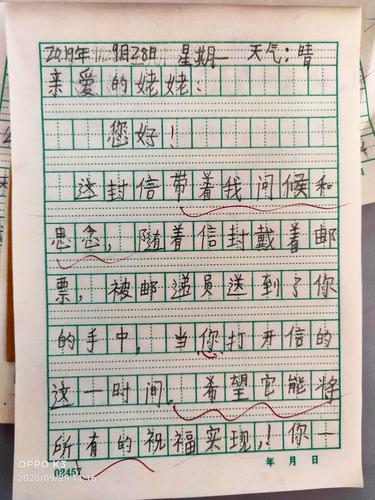 2019年 9月28日 星期一 天气：晴
亲爱的姥姥：
您好！
这封信带着我问候和
思念，随着信封戴着邮
票，被邮递员送到了你
的手中，当你打开信的
这一时间。希望它能将
所有的祝福实现，！你一
年 月 日
02457
OPPO K3
2020/09/29 11:16